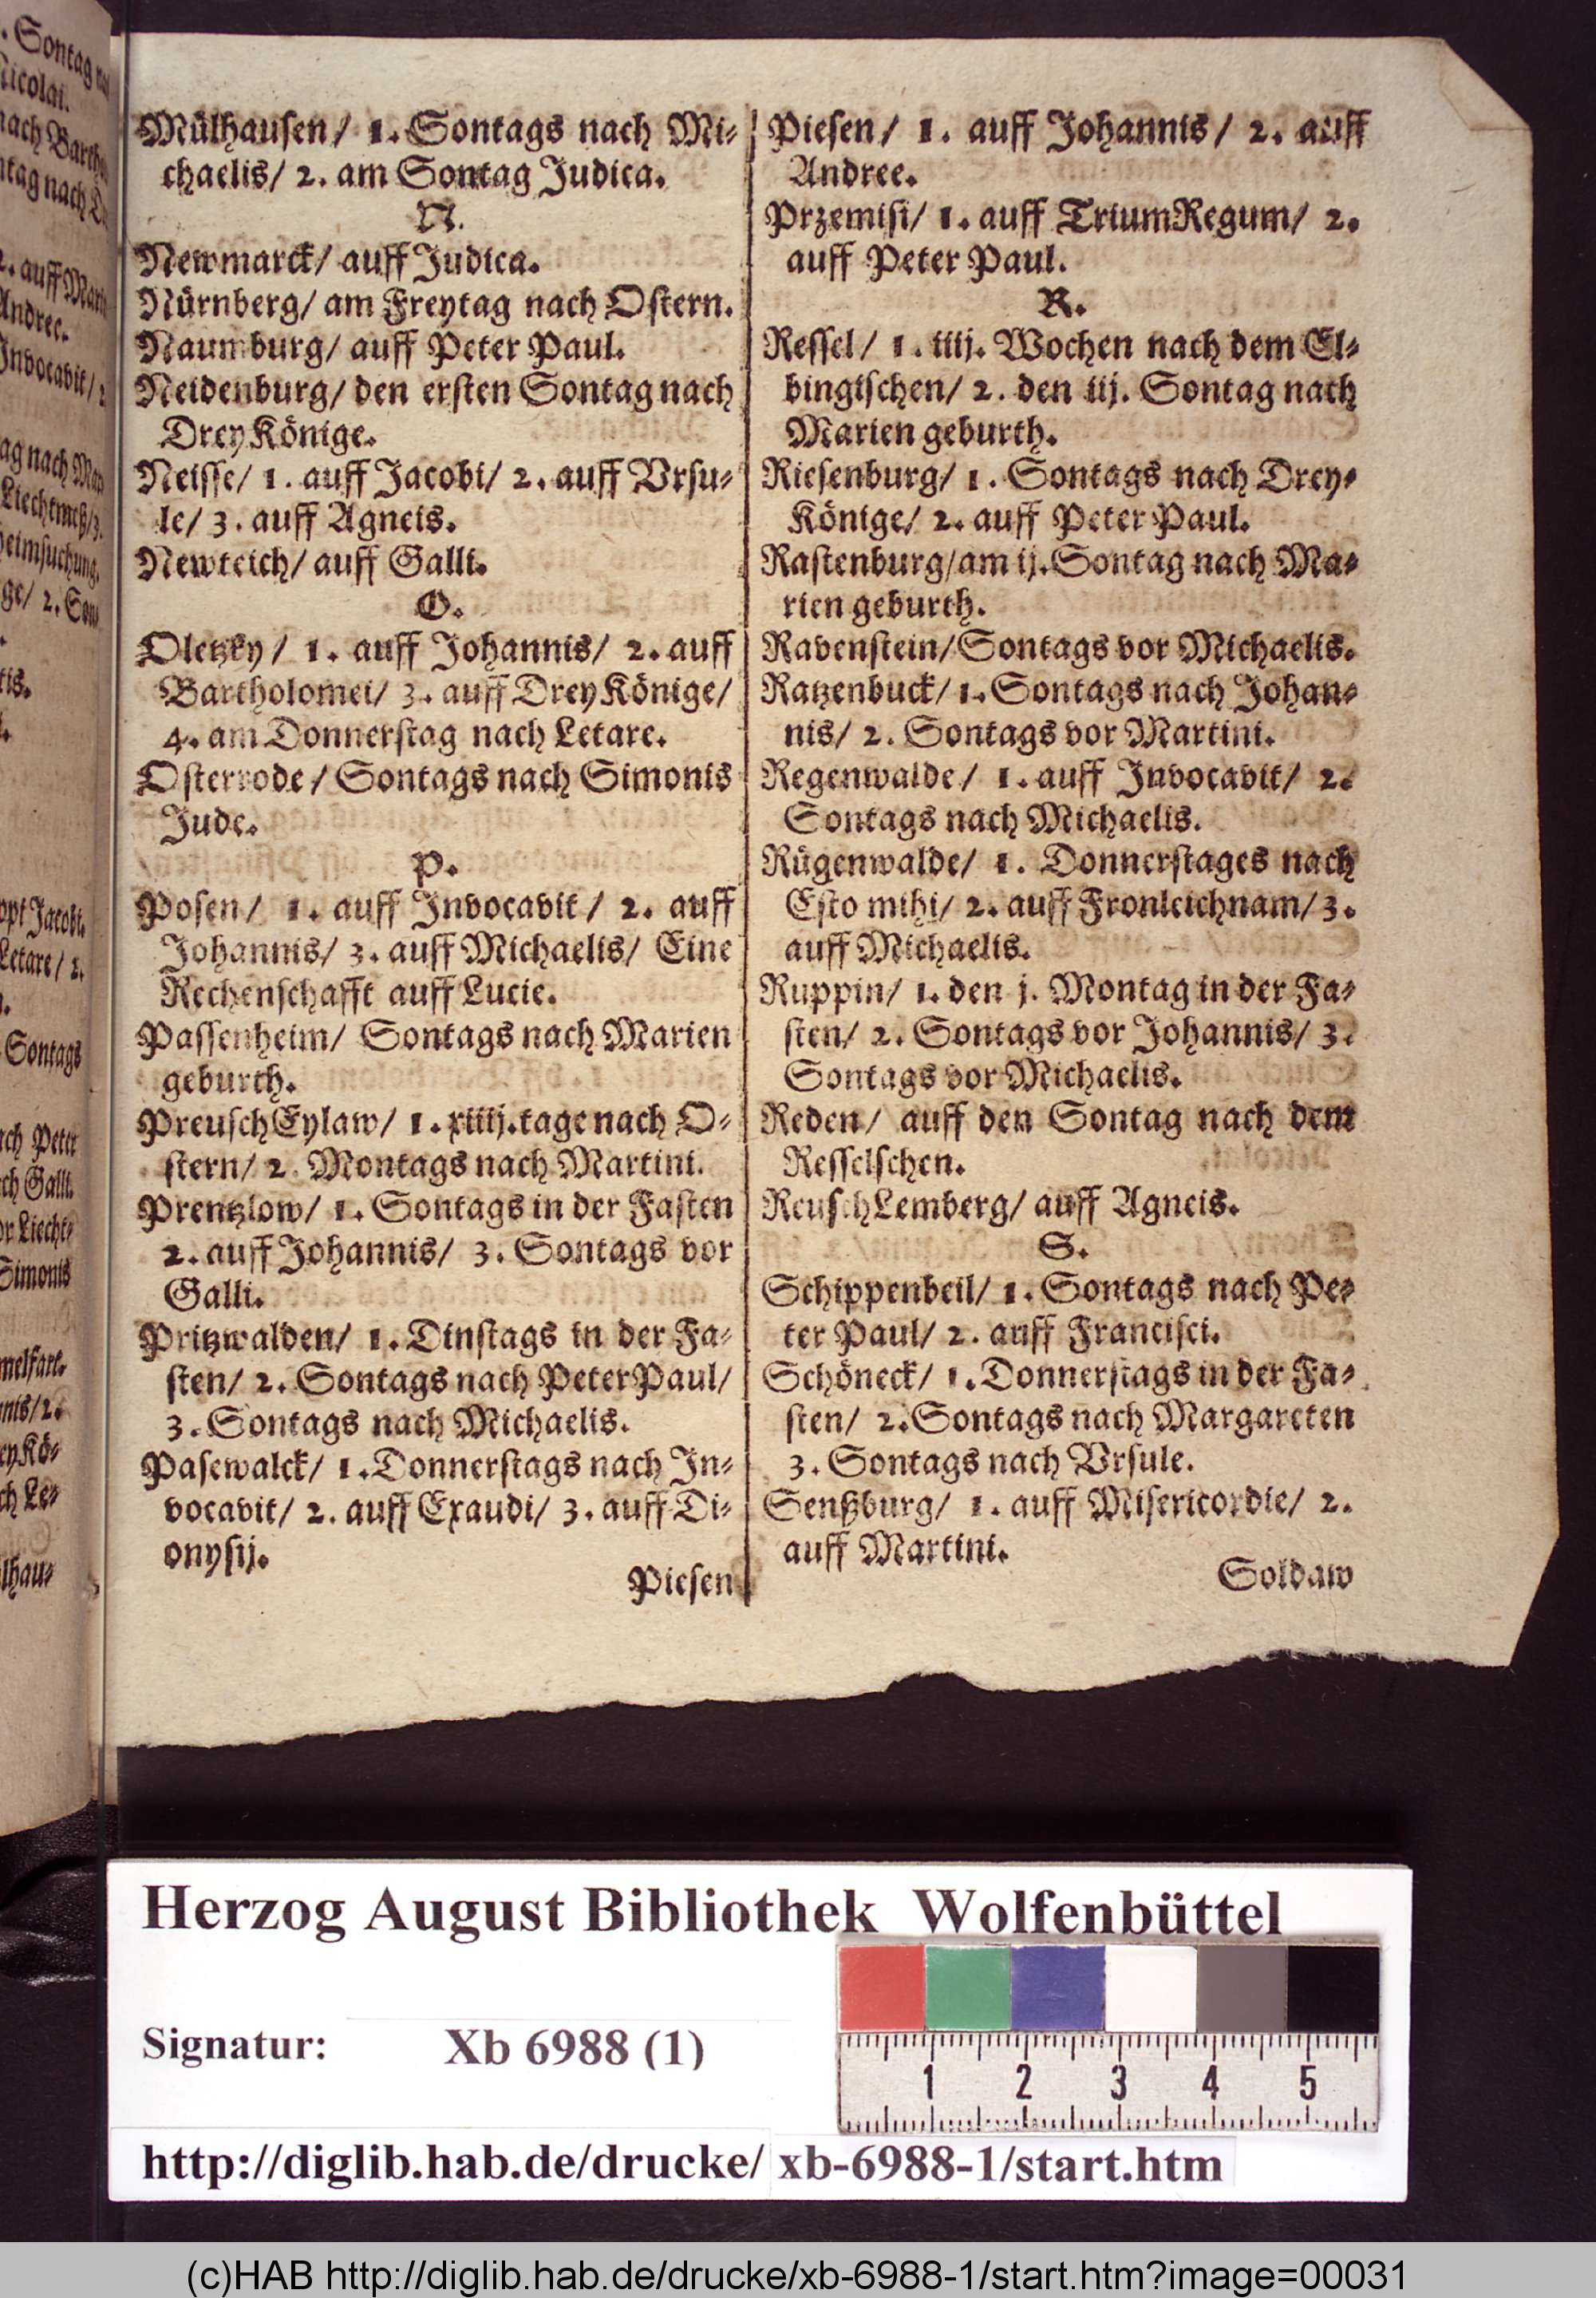 Mülhausen/ 1. Sontags nach Mi-
chaelis/ 2. am Sontag Judica.
N.
Newmarck/ auff Judica.
Nürnberg/ am Freytag nach Ostern.
Naumburg/ auff Peter Paul.
Neidenburg/ den ersten Sontag nach
Drey Könige.
Neisse/ 1. auff Jacobi/ 2. auff Vrsu-
le/ 3. auff Agneis.
Newteich/ auff Galli.
O.
Oletzky/ 1. auff Johannis/ 2. auff
Bartholomei/ 3. auff Drey Könige/
4. am Donnerstag nach Letare.
Osterrode/ Sontags nach Simonis
Jude.
P.
Posen/ 1. auff Invocavit/ 2. auff
Johannis/ 3. auff Michaelis/ Eine
Rechenschafft auff Lucie.
Passenheim/ Sontags nach Marien
geburth.
Preusch Eylaw/ 1. xiiij. tage nach O-
stern/ 2. Montags nach Martini.
Prentzlow/ 1. Sontags in der Fasten
2. auff Johannis/ 3. Sontags vor
Galli.
Pritzwalden/ 1. Dinstags in der Fa-
sten/ 2. Sontags nach Peter Paul/
3. Sontags nach Michaelis.
Pasewalck/ 1. Donnerstags nach In-
vocavit/ 2. auff Exaudi/ 3. auff Di-
onysij.
Piesen
Piesen/ 1. auff Johannis/ 2. auff
Andree.
Przemisi/ 1. auff Trium Regum/ 2.
auff Peter Paul.
R.
Ressel/ 1. iiij. Wochen nach dem El-
bingischen/ 2. den iij. Sontag nach
Marien geburth.
Riesenburg/ 1. Sontags nach Drey-
Könige/ 2. auff Peter Paul.
Rastenburg/ am ij. Sontag nach Ma-
rien geburth.
Ravenstein/ Sontags vor Michaelis.
Ratzenbuck/ 1. Sontags nach Johan-
nis/ 2. Sontags vor Martini.
Regenwalde/ 1. auff Invocavit/ 2.
Sontags nach Michaelis.
Rügenwalde/ 1. Donnerstages nach
Esto mihi/ 2. auff Fronleichnam/ 3.
auff Michaelis.
Ruppin/ 1. den j. Montag in der Fa-
sten/ 2. Sontags vor Johannis/ 3.
Sontags vor Michaelis.
Reden/ auff den Sontag nach dem
Resselschen.
Reusch Lemberg/ auff Agneis.
S.
Schippenbeil/ 1. Sontags nach Pe-
ter Paul/ 2. auff Francisci.
Schöneck/ 1. Donnerstags in der Fa-
sten/ 2. Sontags nach Margareten
3. Sontags nach Vrsule.
Senßburg/ 1. auff Misericordie/ 2.
auff Martini.
Soldaw
Herzog August Bibliothek Wolfenbüttel
Signatur: Xb 6988 (1)
1 2 3 4 5
http://diglib.hab.de/drucke/ xb-6988-1/start.htm
(c)HAB http://diglib.hab.de/drucke/xb-6988-1/start.htm?image=00031